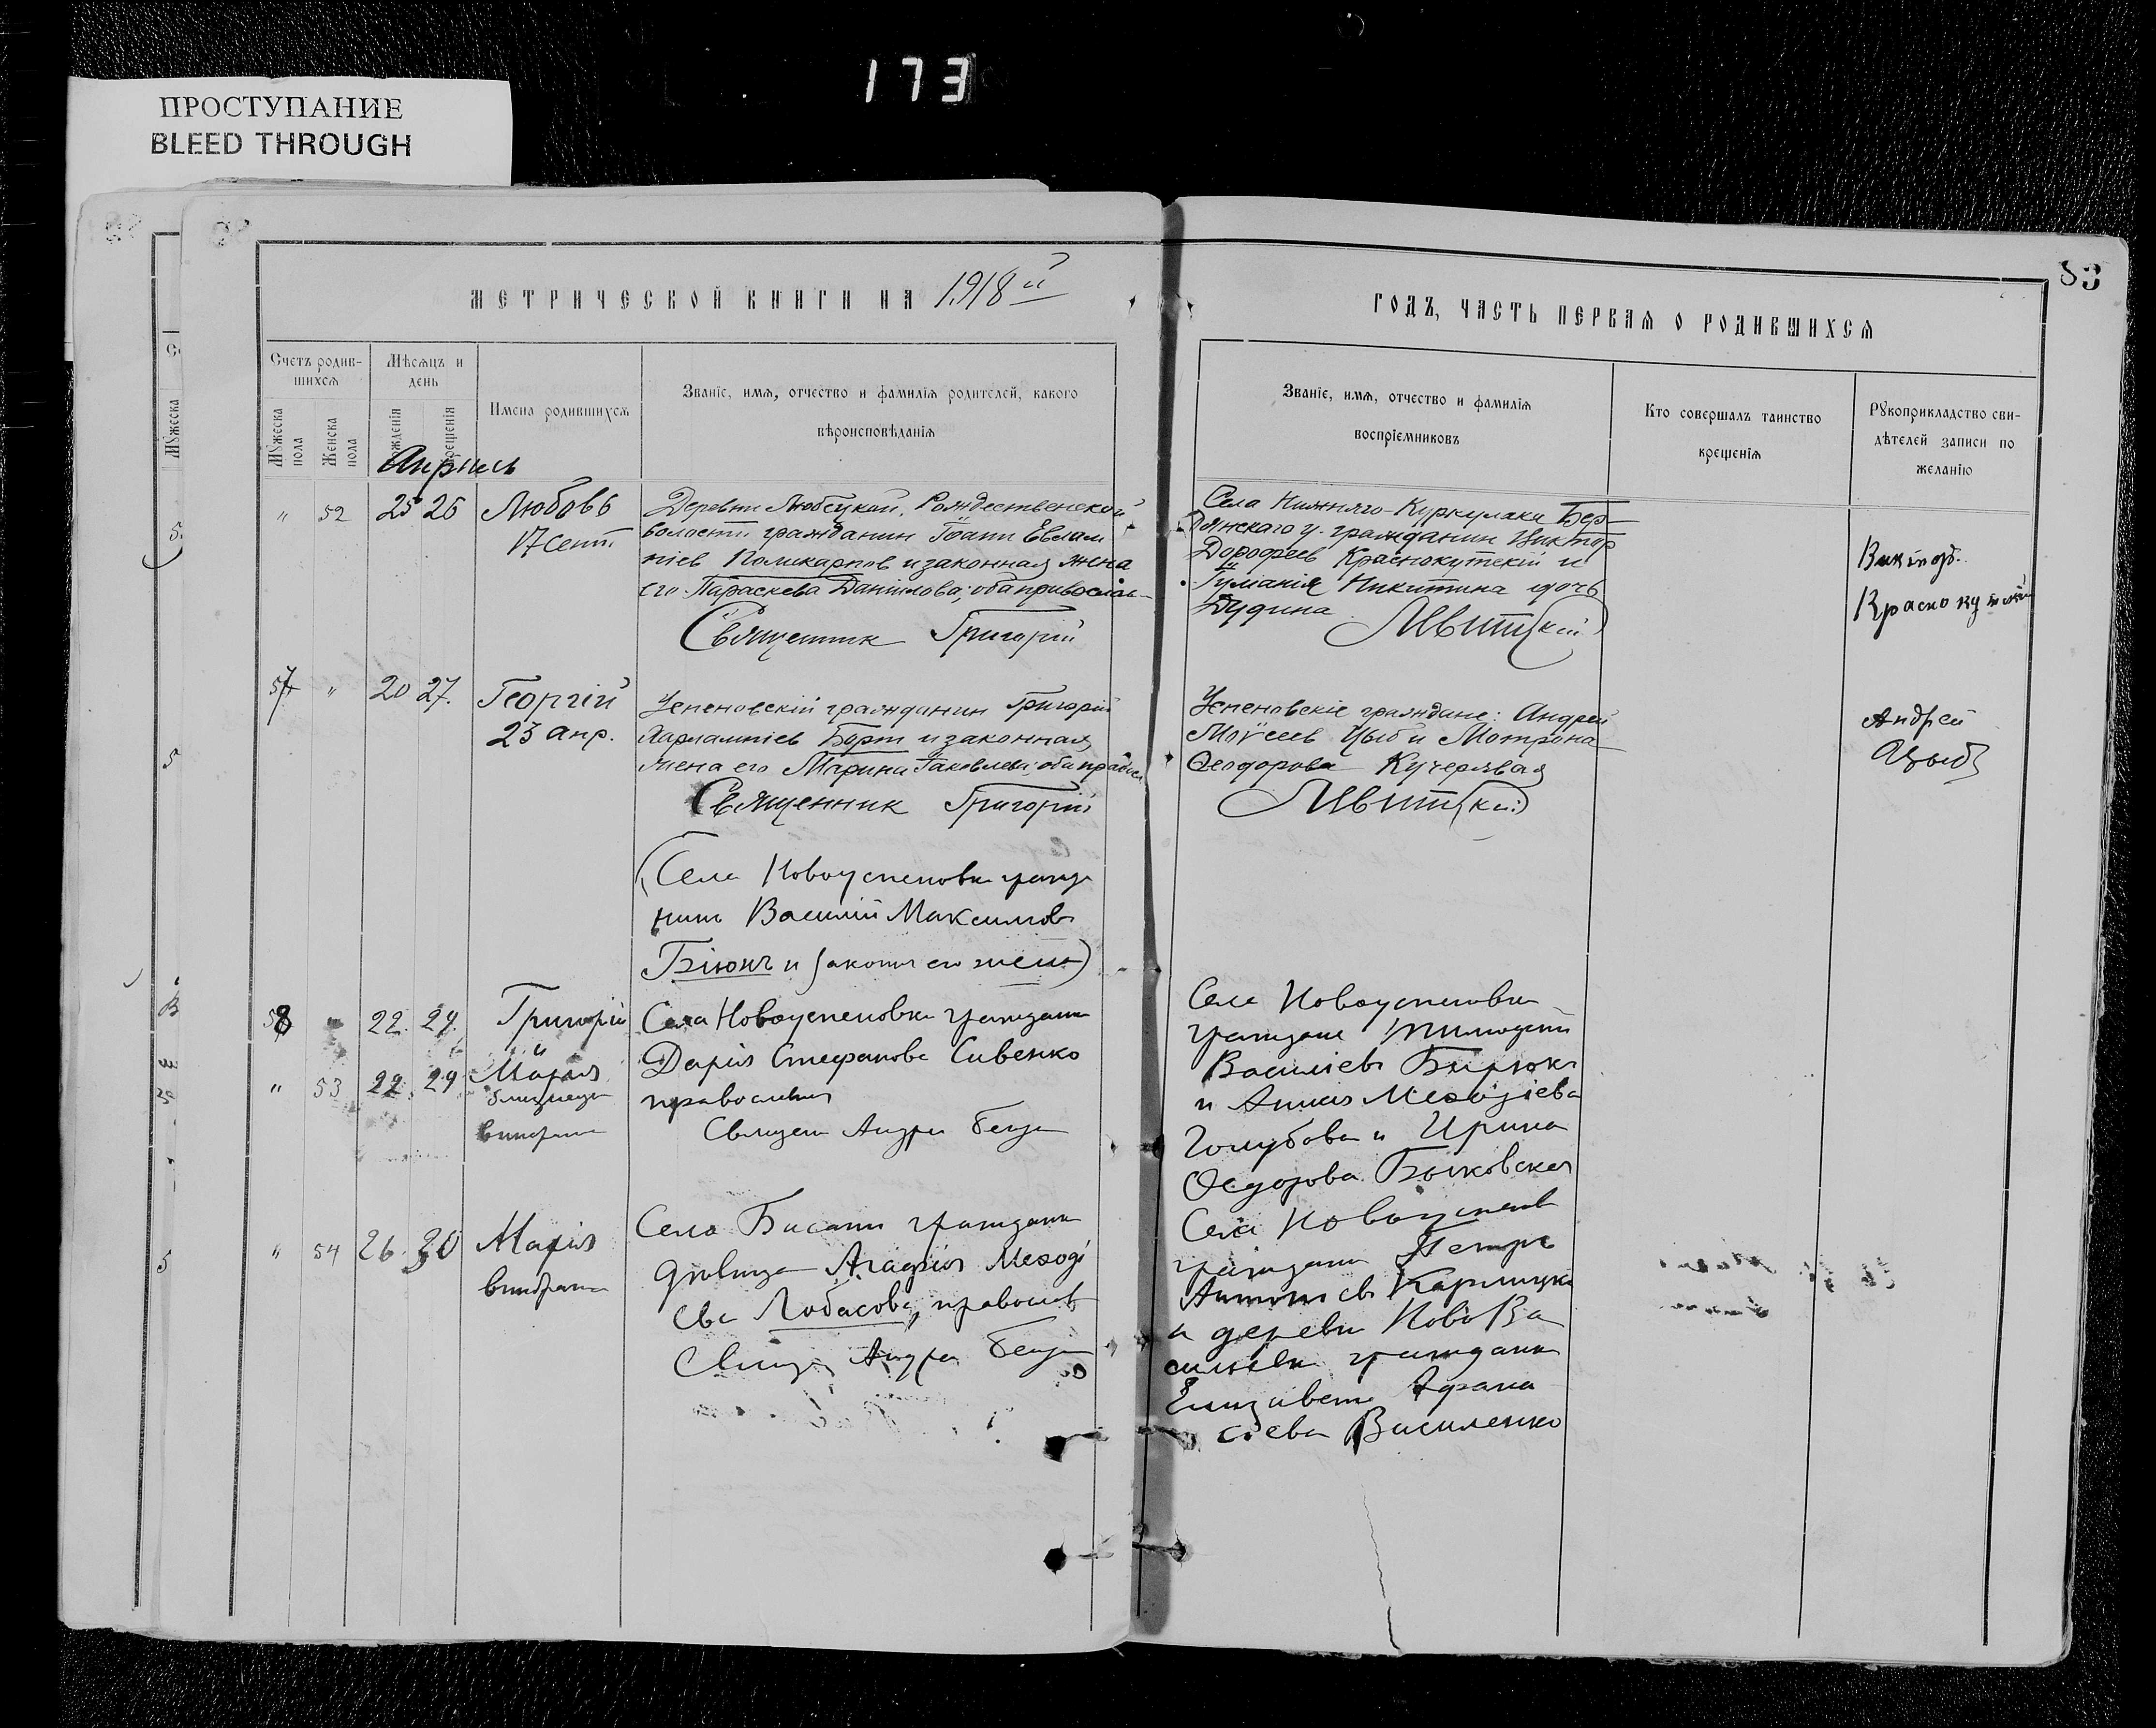 173
ПРОСТУПАНИЕ
BLEED THROUGH
83
МЕТРИЧЕСКОЙ КНИГИ НА 1918 й
ГОДЪ, ЧАСТЬ ПЕРВАЯ О РОДИВШИХСЯ
Счетъ родив-
шихся
Мужеска
пола
Женска
пола
Мѣсяцъ и
день
рожденія
крещенія
Имена родившихся
Званіе, имя, отчество и фамилія родителей, какого
вѣроисповѣданія
Званіе, имя, отчество и фамилія
воспріемниковъ
Кто совершалъ таинство
крещенія
Рукоприкладство сви-
дѣтелей записи по
желанію
Апрель
" 52 25 26 Любовь
17 сент.
Деревни Рождественской
волости гражданин Іоанн Евлам
піев Поликарпов и законная жена
его Параскева Даніилова; оба православ-
Священник Григорій
Села Нижняго-Куркулака Бер-
дянскаго у. гражданин Виктор
Дорофеев Краснокутскій и
Никитина дочь
Дудина
Левитскій
Виктор
Краснокутскій
57 " 20 27. Георгій
23 апр.
Успеновскій гражданин Григорій
Харлампіев Борт и законная
жена его Марина Іаковлева; оба правосл
Священник Григорій
Успеновскіе граждане: Андрей
Моѵсеев Цыб и Мотрона
Ѳеодорова Кучерявая
Левитскій
Андрей
Цыб
(Села Новоуспеновки гражда
нинъ Василій Максимовъ
Біюкъ и законн его жена)
58 " 22. 29. Григорій
и
" 53 22. 29 Марія
близнецы
Села Новоуспеновки гражданка
Дарія Стефанова Сивенко
православная
Священ Андрей
Села Новоуспеновки
граждане Тимофей
Василіевъ Бирюкъ
и Анна Меѳодіева
Голубова и Ирина
Ѳедорова Бычковская
" 54 26. 30 Марія
Села гражданка
девица Агафія Меѳоді
ева Лобасова, православ
Свящ. Андрей
Села Новоуспенов
гражданин Петръ
и деревни НовоВа
сильевки гражданка
Елизавета Афана
сіева Василенко